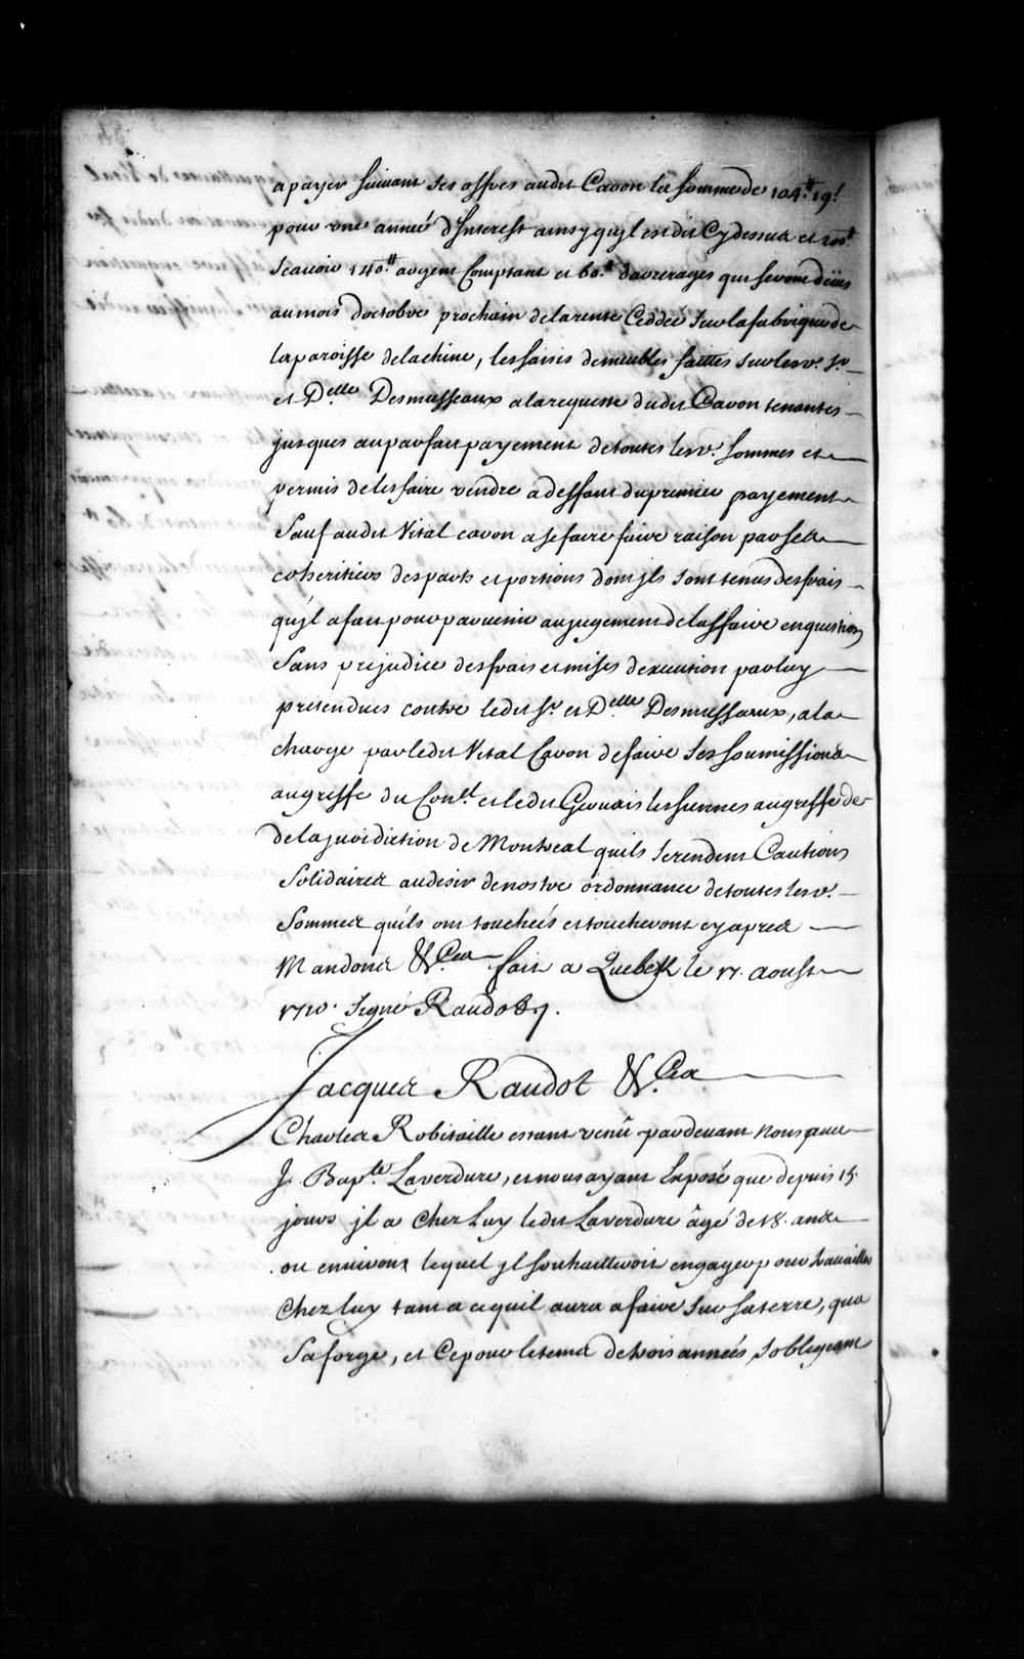 a payer suivant ses offres audit Caron la somme de 104.tt 19.s
pour une année d'Interest ainsy qu'jl est dit Cydessus et
Scavoir 140.tt argent Comptant et 60.tt darrerages qui seront dües
au mois doctobre prochain de la rente Ceddée sur la fabrique de
la paroisse de lachine, les saisies de meubles faittes sur lesd. Sr.
et D.elle Desmusseaux a la requeste dudit Caron tenantes
jusques au parfait payement de toutes lesd. sommes et
permis de les faire vendre a deffaut du premier payement
Sauf audit Vital caron a se faire faire raison par ses
coheritiers des parts et portions dont jls sont tenus des frais
qu'jl a fait pour parvenir au jugement de laffaire en question
Sans prejudice des frais et mises dexecution par luy
pretendues contre ledit Sr. et D.elle Desmusseaux, a la
charge par ledit Vital Caron de faire ses soumissions
au greffe du Con.el et ledit Gervais les siennes au greffe de
de la jurisdiction de Montreal quils se rendent Cautions
Solidaires au desir de nostre ordonnance de toutes lesd.
Sommes qu'ils ont touchées et toucheront cy apres
Mandons &.Cea fait a Quebek le 17. aoust
1710. Signé Raudot.
Jacques Raudot &.Cea
Charles Robitaille estant venû pardevant nous avec
J. Bap.te Laverdure, et nous ayant Exposé que depuis 15.
jours jl a chez Luy ledit Laverdure âgé de 18. ans
ou environs lequel jl souhaitteroit engager pour travailler
Chez luy tant a ce quil aura a faire sur sa terre, qua
Sa forge, et Ce pour le tems de trois années, sobligeant